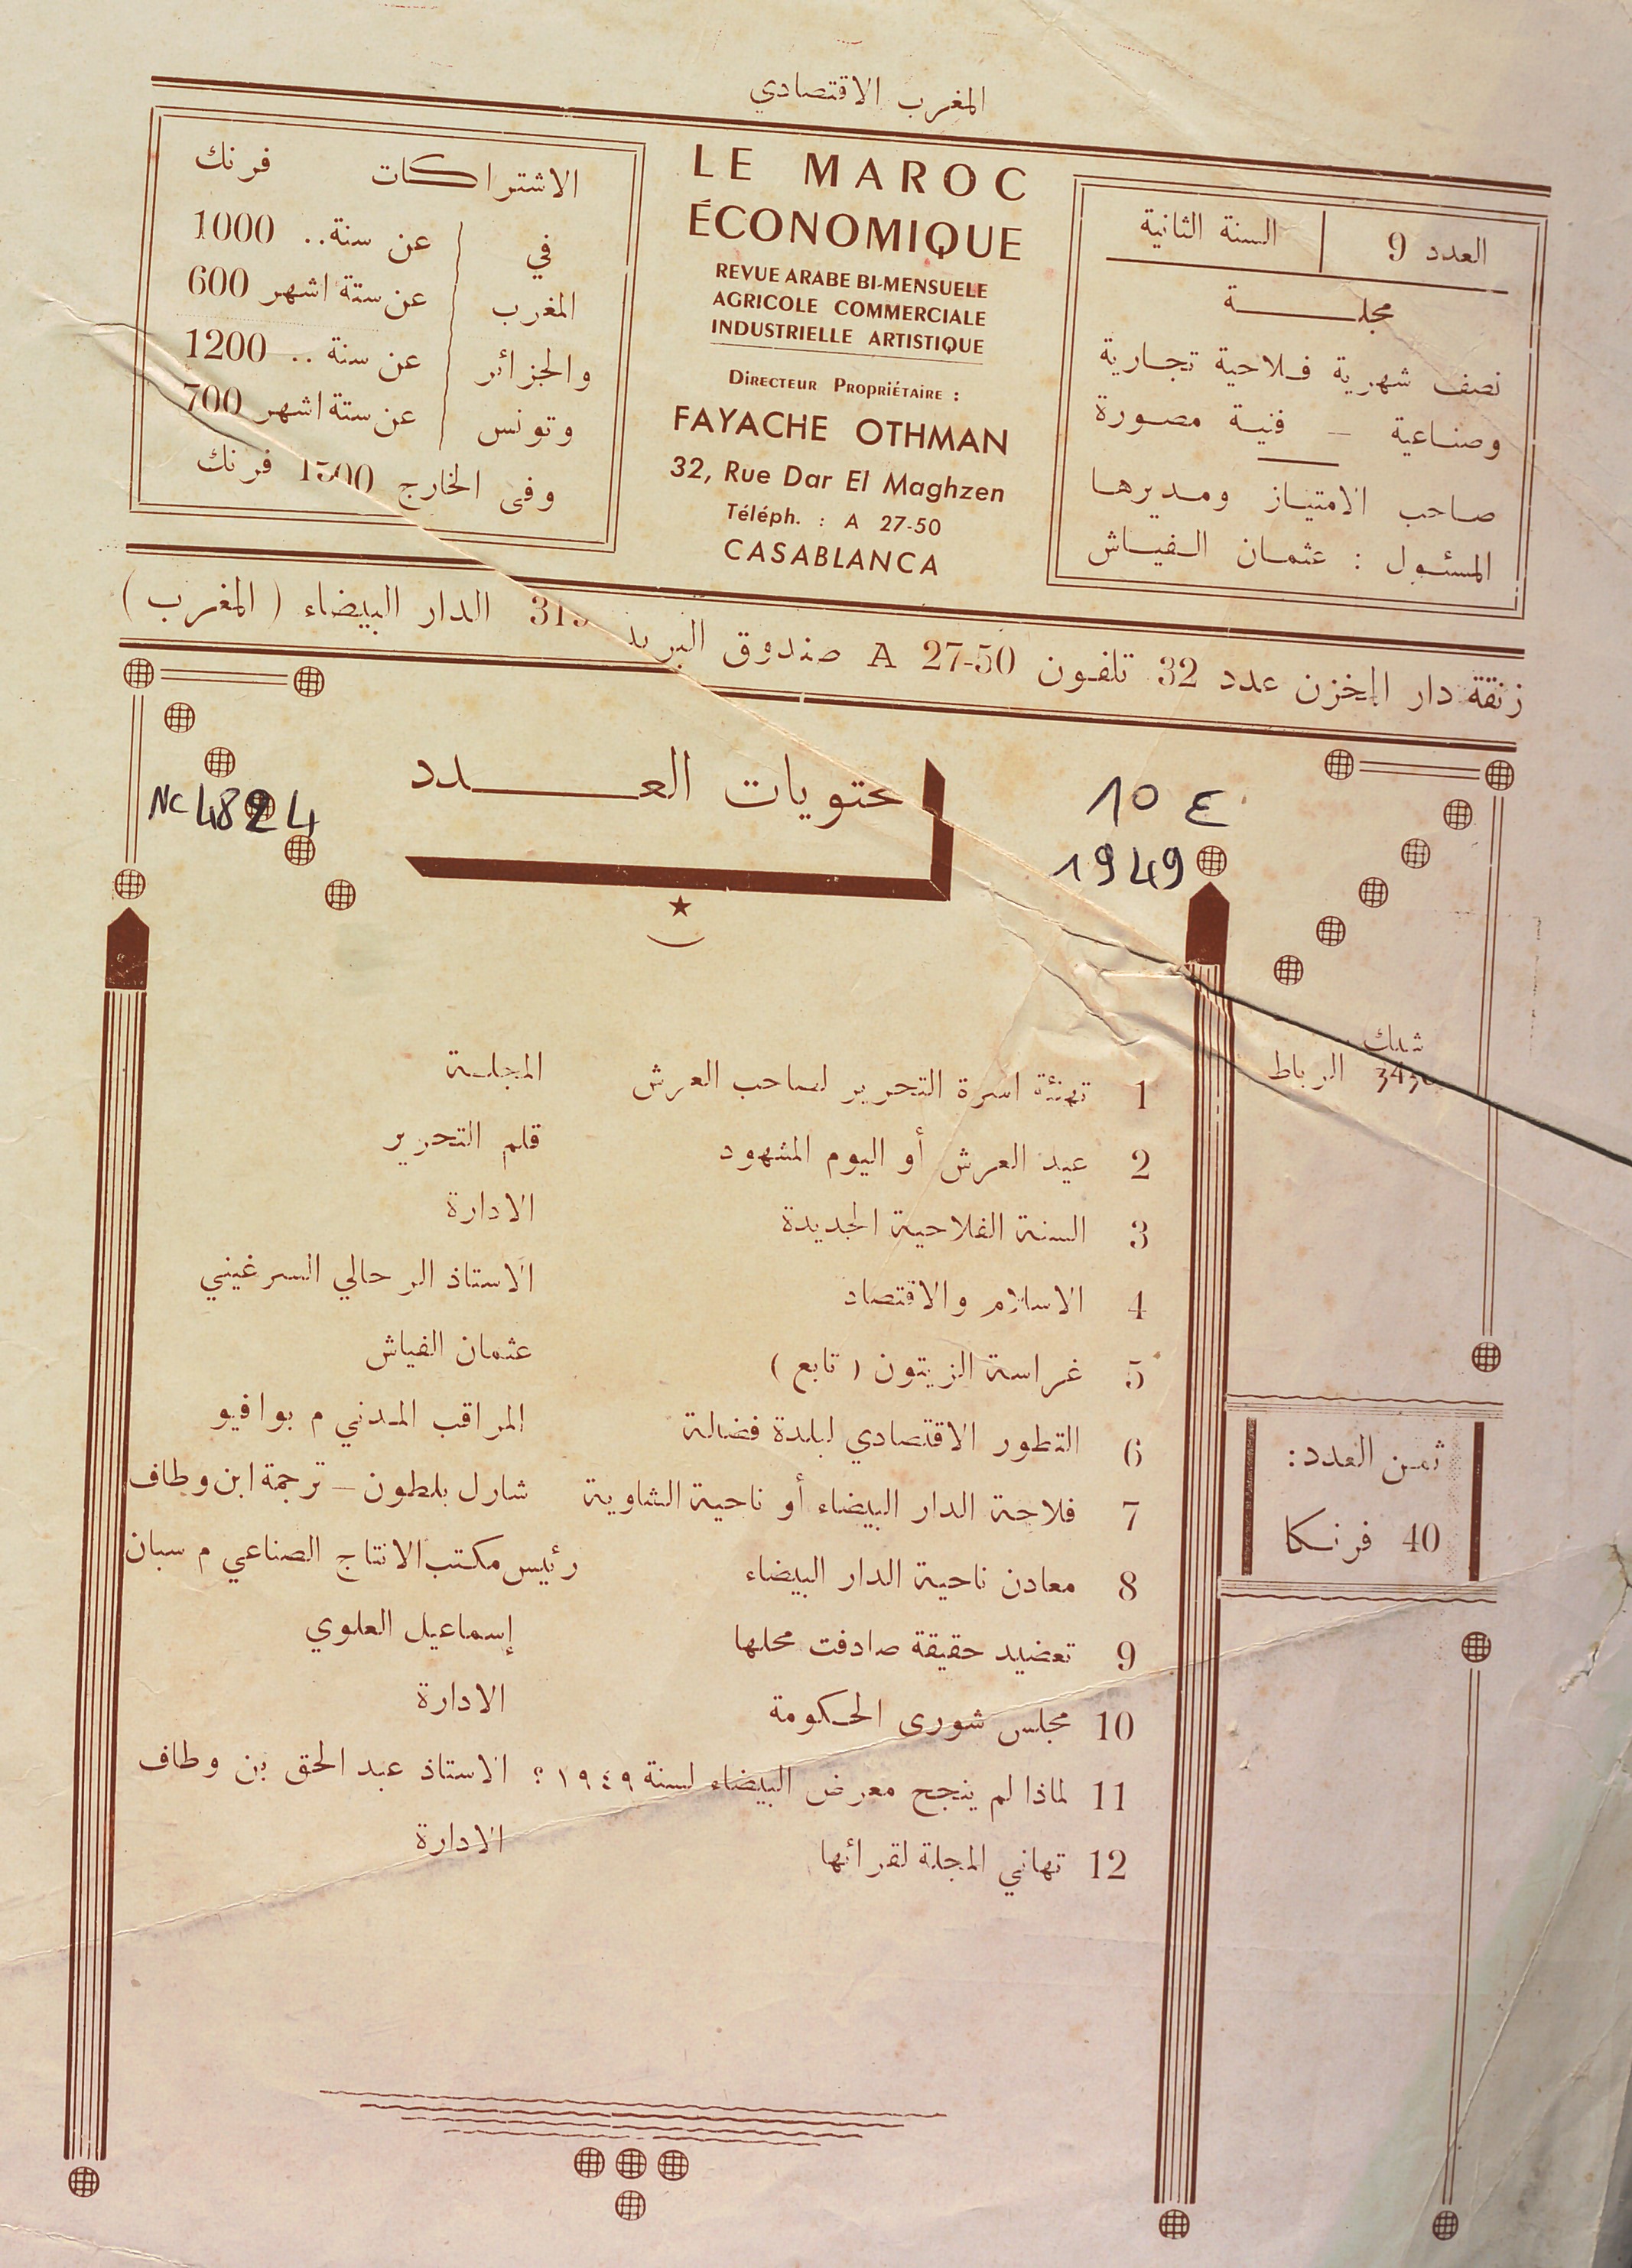 المغرب الاقتصادي
العدد 9 السنة الثانية
مجلة
نصف شهرية فلاحية تجارية
وصناعية – فنية مصورة
صاحب الامتياز ومديرها
المسئول : عثمان الفياش
LE MAROC
ÉCONOMIQUE
REVUE ARABE BI-MENSUELE
AGRICOLE COMMERCIALE
INDUSTRIELLE ARTISTIQUE
Directeur Propriétaire :
FAYACHE OTHMAN
32, Rue Dar El Maghzen
Téléph. : A 27-50
CASABLANCA
الاشتراكات فرنك
في المغرب والجزائر وتونس
عن سنة .. 1000
عن ستة اشهر 600
عن سنة .. 1200
عن ستة اشهر 700
وفى الخارج 1500 فرنك
زنقة دار المخزن عدد 32 تلفون A 27-50 صندوق البريد الدار البيضاء ( المغرب )
محتويات العدد
Nc 4824
10 ع
1949
الرباط
1 تهنئة اسرة التحرير لصاحب العرش المجلة
2 عيد العرش أو اليوم المشهود قلم التحرير
3 السنة الفلاحية الجديدة الادارة
4 الاسلام والاقتصاد الاستاذ الرحالي السرغيني
5 غراسة الزيتون ( تابع ) عثمان الفياش
6 التطور الاقتصادي لبلدة فضالة المراقب المدني م بوافيو
7 فلاحة الدار البيضاء أو ناحية الشاوية شارل بلطون – ترجمة ابن وطاف
8 معادن ناحية الدار البيضاء رئيس مكتب الانتاج الصناعي م سبان
9 تعضيد حقيقة صادفت محلها إسماعيل العلوي
10 مجلس شورى الحكومة الادارة
11 لماذا لم ينجح معرض البيضاء لسنة ١٩٤٩ ؟ الاستاذ عبد الحق بن وطاف
12 تهاني المجلة لقرائها الادارة
ثمن العدد :
40 فرنكا